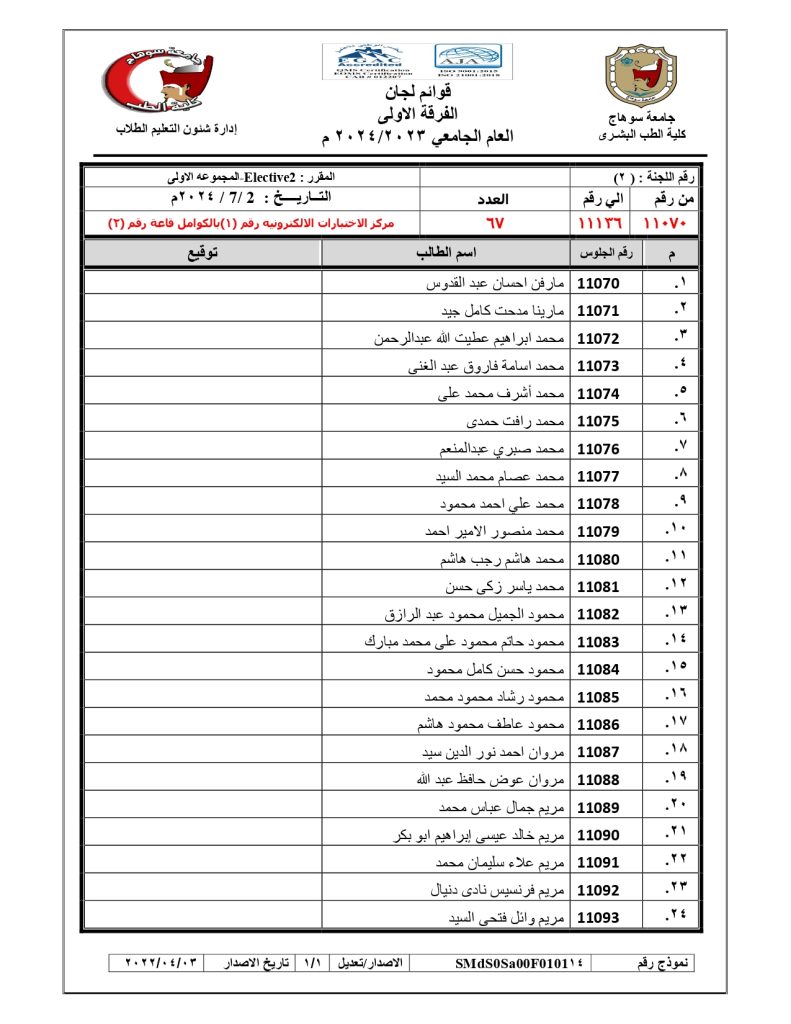 جامعة سوهاج
كلية الطب
إدارة شئون التعليم الطلاب
EGAC
Accredited
QMS Certification
EOMS Certification
CAB # 012207
AJA
ISO 9001:2015
ISO 21001:2018
قوائم لجان
الفرقة الاولى
العام الجامعي ٢٠٢٤/٢٠٢٣ م
جامعة سوهاج
كلية الطب البشرى
رقم اللجنة : ( ٢) المقرر : Elective2-المجموعه الاولى
من رقم الي رقم العدد التــاريـــخ : 2 /7/ ٢٠٢٤م
١١٠٧٠ ١١١٣٦ ٦٧ مركز الاختبارات الالكترونيه رقم (١)بالكوامل قاعة رقم (٢)
م رقم الجلوس اسم الطالب توقيع
١. 11070 مارفن احسان عبد القدوس
٢. 11071 مارينا مدحت كامل جيد
٣. 11072 محمد ابراهيم عطيت الله عبدالرحمن
٤. 11073 محمد اسامة فاروق عبد الغنى
٥. 11074 محمد أشرف محمد على
٦. 11075 محمد رافت حمدى
٧. 11076 محمد صبري عبدالمنعم
٨. 11077 محمد عصام محمد السيد
٩. 11078 محمد علي احمد محمود
١٠. 11079 محمد منصور الامير احمد
١١. 11080 محمد هاشم رجب هاشم
١٢. 11081 محمد ياسر زكى حسن
١٣. 11082 محمود الجميل محمود عبد الرازق
١٤. 11083 محمود حاتم محمود على محمد مبارك
١٥. 11084 محمود حسن كامل محمود
١٦. 11085 محمود رشاد محمود محمد
١٧. 11086 محمود عاطف محمود هاشم
١٨. 11087 مروان احمد نور الدين سيد
١٩. 11088 مروان عوض حافظ عبد الله
٢٠. 11089 مريم جمال عباس محمد
٢١. 11090 مريم خالد عيسى إبراهيم ابو بكر
٢٢. 11091 مريم علاء سليمان محمد
٢٣. 11092 مريم فرنسيس نادى دنيال
٢٤. 11093 مريم وائل فتحى السيد
نموذج رقم SMdS0Sa00F0101١٤ الاصدار/تعديل ١/١ تاريخ الاصدار ٢٠٢٢/٠٤/٠٣